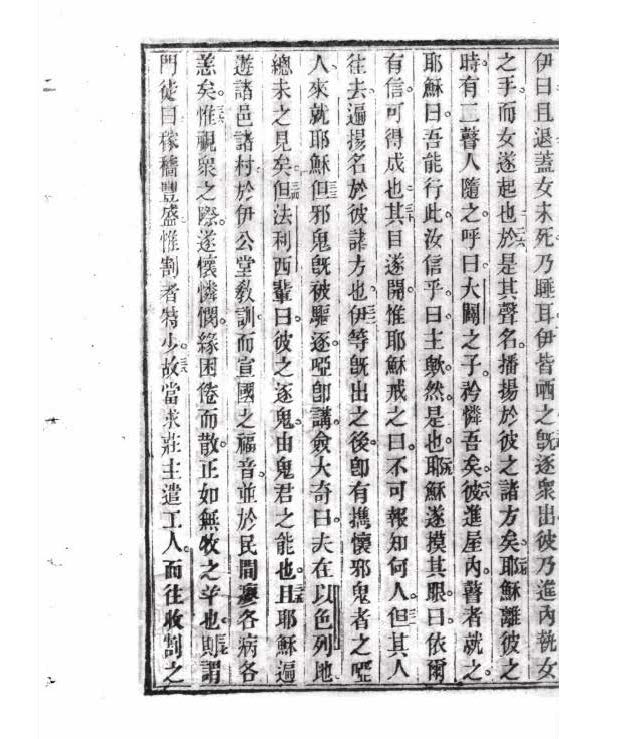 伊曰且退蓋女未死乃睡耳伊皆哂之旣逐衆出彼乃進內執女
之手而女遂起也於是其聲名播揚於彼之諸方矣耶穌離彼之
時有二瞽人隨之呼曰大闢之子矜憐吾矣彼進屋內瞽者就之
耶穌曰吾能行此汝信乎曰主歟然是也耶穌遂摸其眼曰依爾
有信可得成也其目遂開惟耶穌戒之曰不可報知何人但其人
往去遍揚名於彼諸方也伊等旣出之後卽有攜懷邪鬼者之啞
人來就耶穌但邪鬼旣被驅逐啞卽講僉大奇曰夫在以色列地
總未之見矣但法利西輩曰彼之逐鬼由鬼君之能也且耶穌遍
遊諸邑諸村於伊公堂敎訓而宣國之福音並於民間瘳各病各
恙矣惟視衆之際遂懷憐憫緣困倦而散正如無牧之羊也則謂
門徒曰稼穡豐盛惟割者特少故當求莊主遣工人而往收割之